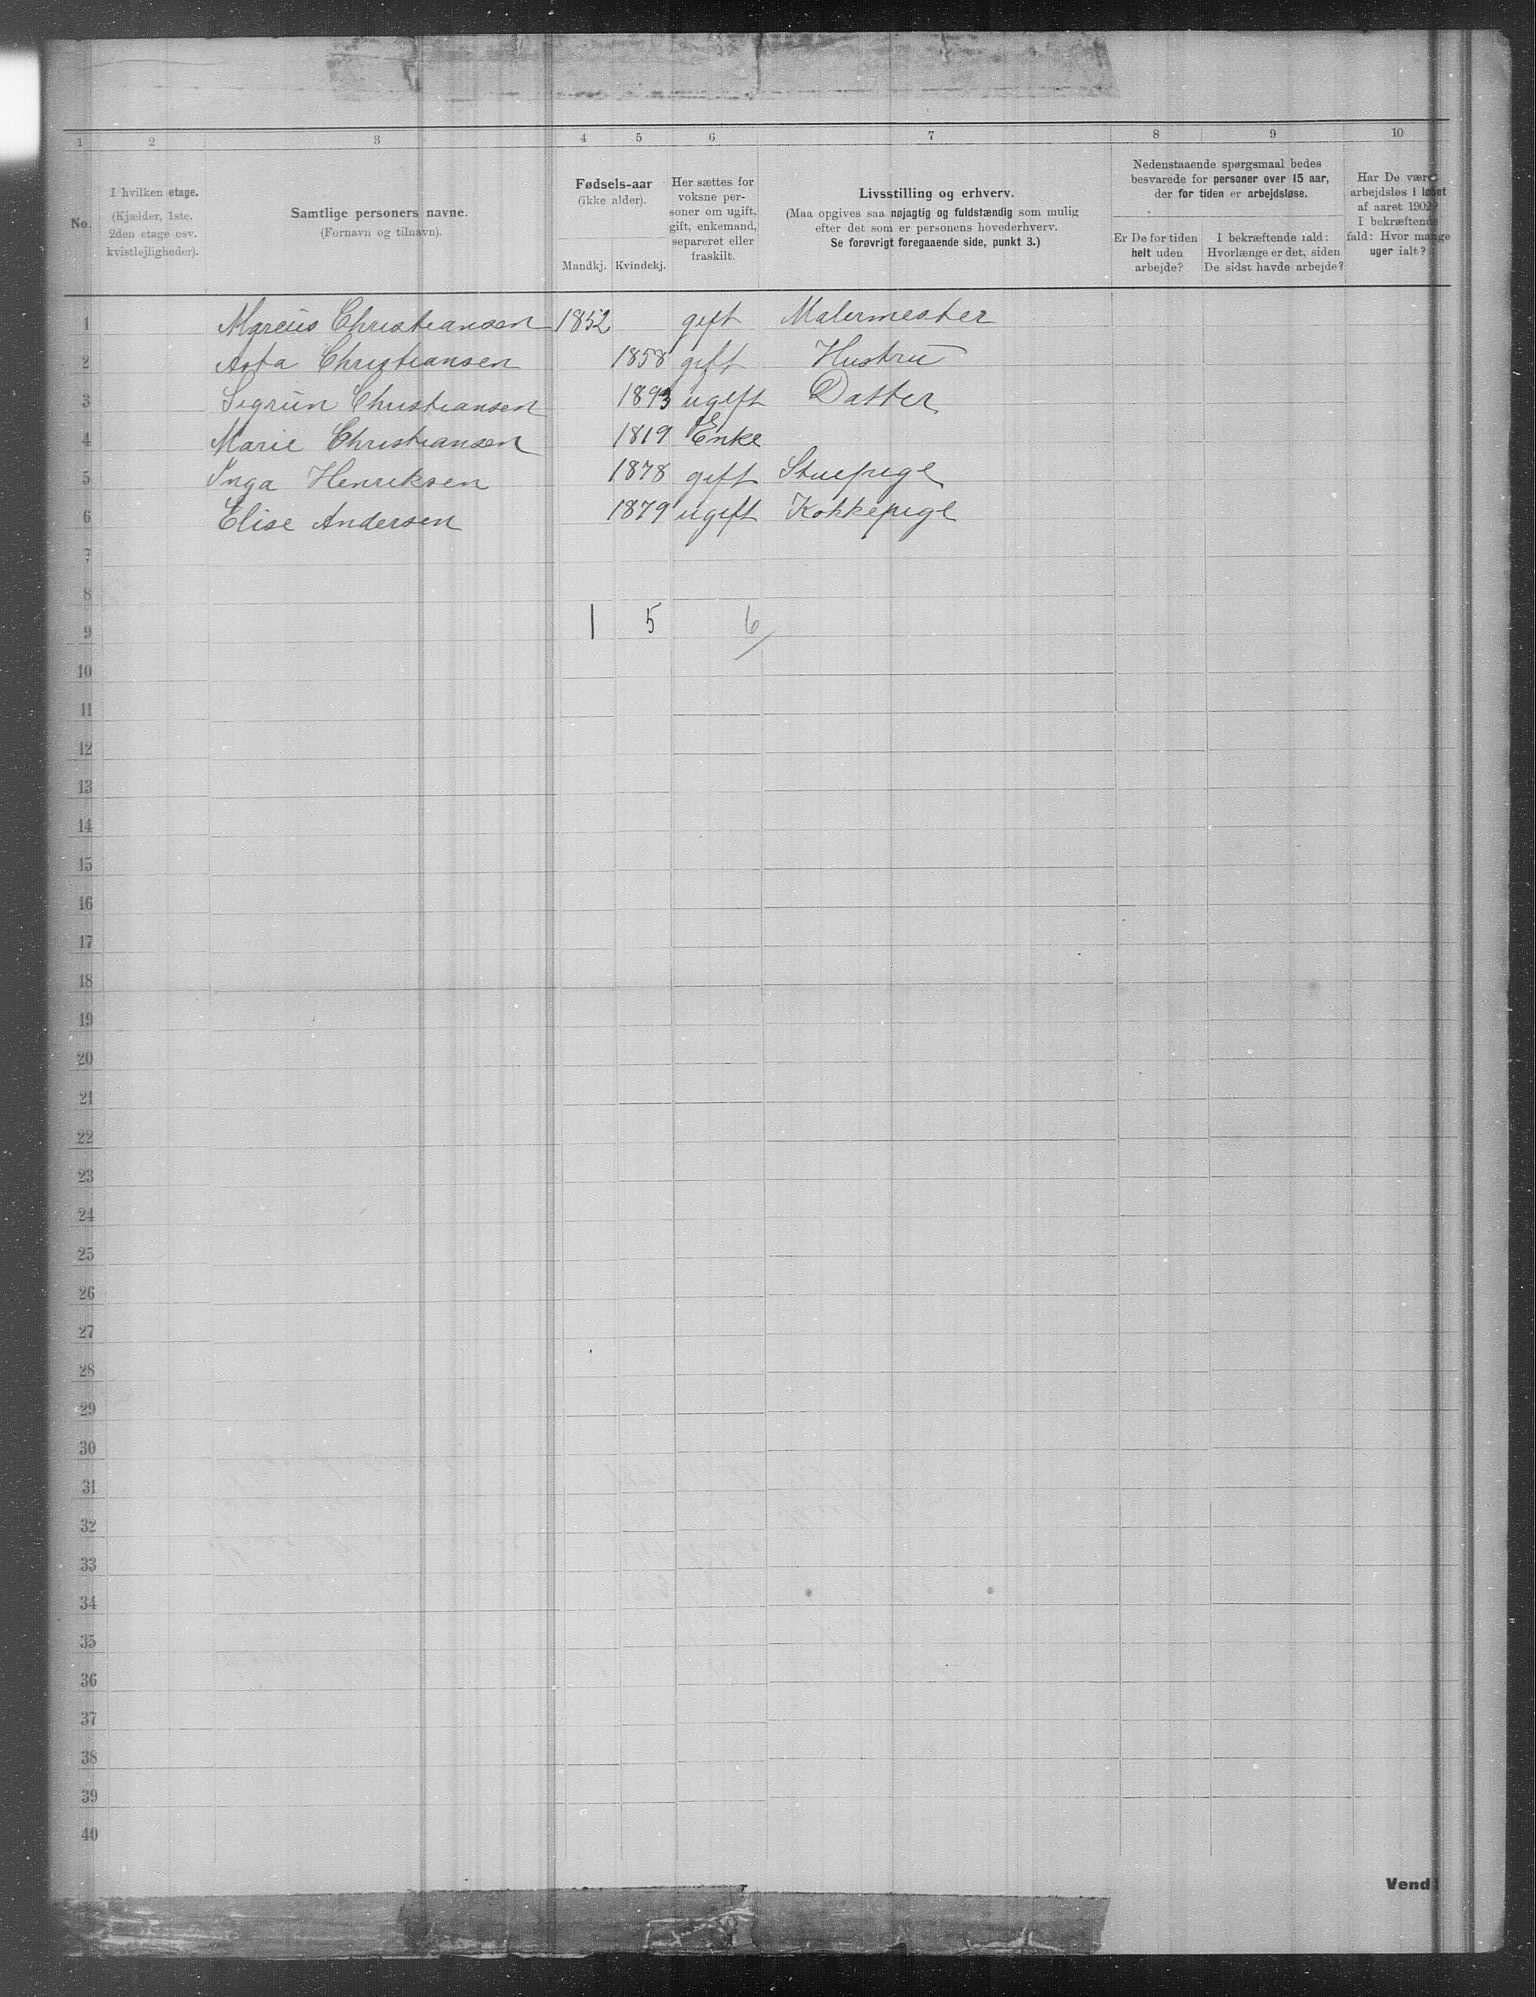 1 2 3 4 5 6 7 8 9 10
No.
I hvilken etage.
(Kjælder, 1ste.
2den etage osv.
kvistlejligheder).
Samtlige personers navne.
(Fornavn og tilnavn).
Fødsels-aar
(ikke alder).
Mandkj. Kvindekj.
Her sættes for
voksne per-
soner om ugift,
gift, enkemand,
separeret eller
fraskilt.
Livsstilling og erhverv.
(Maa opgives saa nøjagtig og fuldstændig som mulig
efter det som er personens hovederhverv.
Se forøvrigt foregaaende side, punkt 3.)
Nedenstaaende spørgsmaal bedes
besvarede for personer over 15 aar,
der for tiden er arbejdsløse.
Er De for tiden
helt uden
arbejde?
I bekræftende fald:
Hvorlænge er det, siden
De sidst havde arbejde?
Har De været
arbejdsløs i løbet
af aaret 1902?
I bekræftende
fald: Hvor mange
uger ialt?
1 Marcus Christiansen 1852 gift Malermester
2 Asta Christiansen 1858 gift Hustru
3 Sigrun Christiansen 1893 ugift Datter
4 Marie Christiansen 1819 Enke
5 Inga Henriksen 1878 gift Stuepige
6 Elise Andersen 1879 ugift Kokkepige
7
8
9 1 5 6
10
11
12
13
14
15
16
17
18
19
20
21
22
23
24
25
26
27
28
29
30
31
32
33
34
35
36
37
38
39
40
Vend!